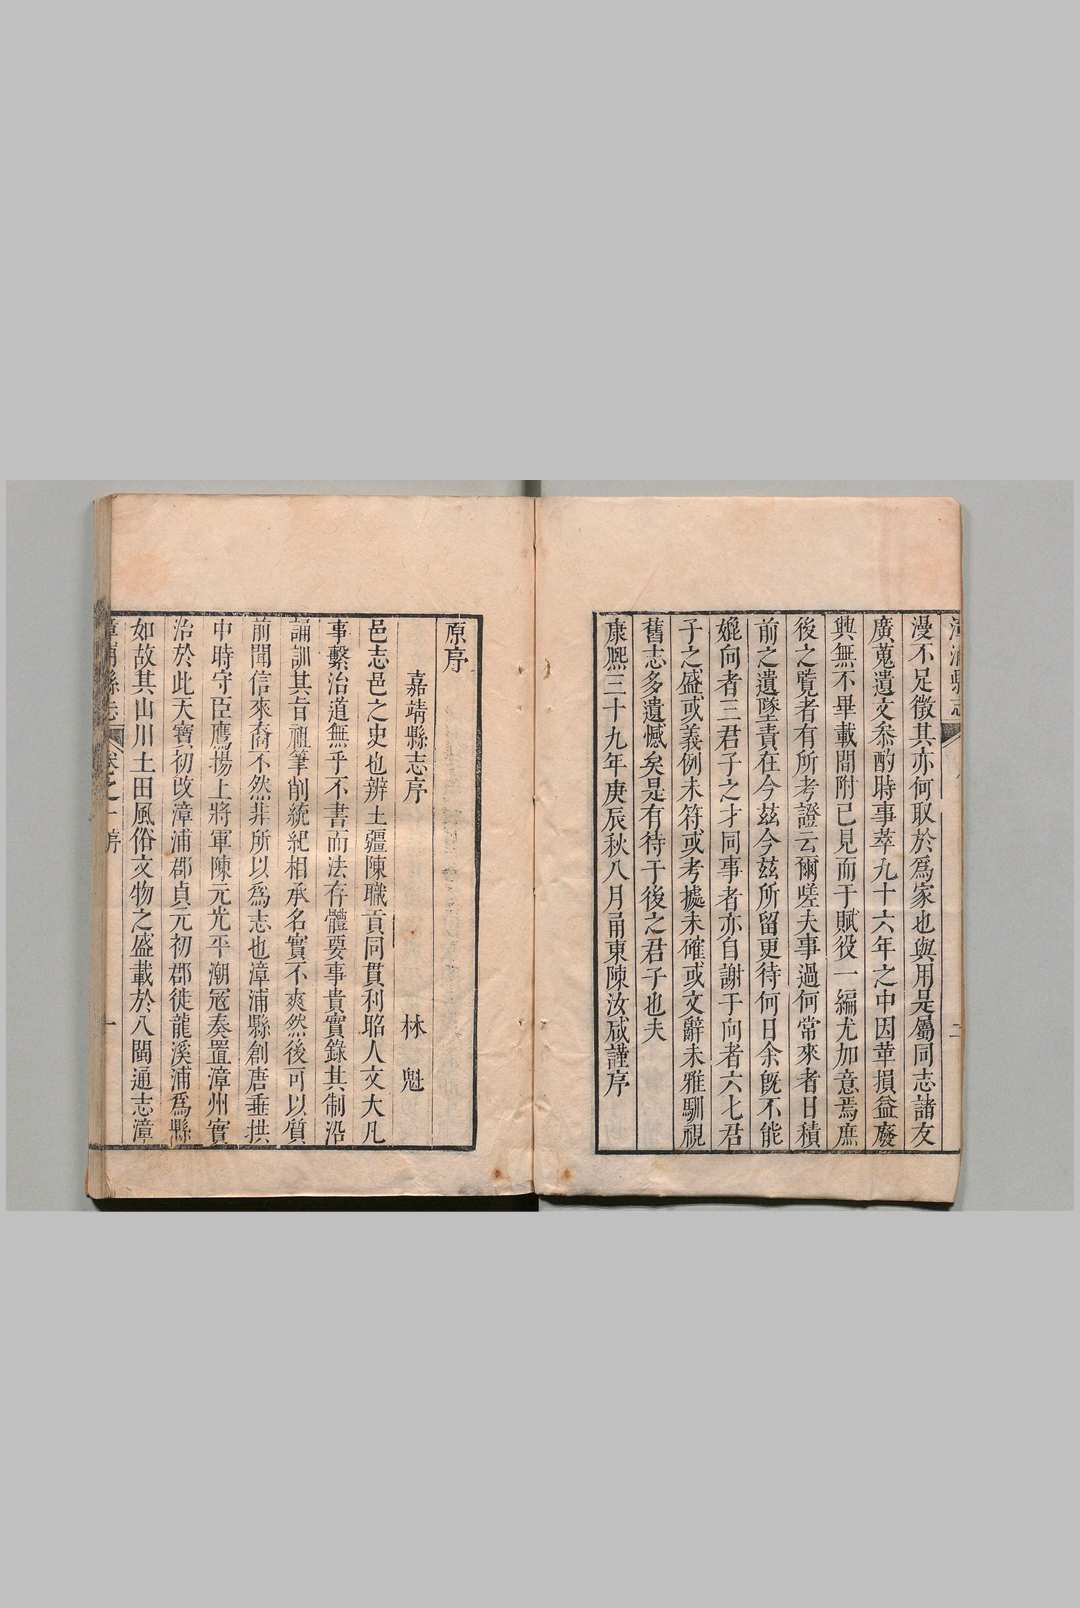 漳浦縣志
二
漫不足徵其亦何取於爲家也與用是屬同志諸友
廣蒐遺文叅酌時事萃九十六年之中因革損益廢
興無不畢載間附已見而于賦役一編尤加意焉庶
後之覽者有所考證云爾嗟夫事過何常來者日積
前之遺墜責在今茲今茲所留更待何日余旣不能
媲向者三君子之才同事者亦自謝于向者六七君
子之盛或義例未符或考據未確或文辭未雅馴視
舊志多遺憾矣是有待于後之君子也夫
康熙三十九年庚辰秋八月甬東陳汝咸謹序
原序
嘉靖縣志序
林魁
邑志邑之史也辨土疆陳職貢同貫利昭人文大凡
事繫治道無乎不書而法存體要事貴實錄其制沿
誦訓其旨祖筆削統紀相承名實不爽然後可以質
前聞信來裔不然非所以爲志也漳浦縣創唐垂拱
中時守臣鷹揚上將軍陳元光平潮寇奏置漳州實
治於此天寶初改漳浦郡貞元初郡徙龍溪浦爲縣
如故其山川土田風俗文物之盛載於八閩通志漳
漳浦縣志 卷之十序 一